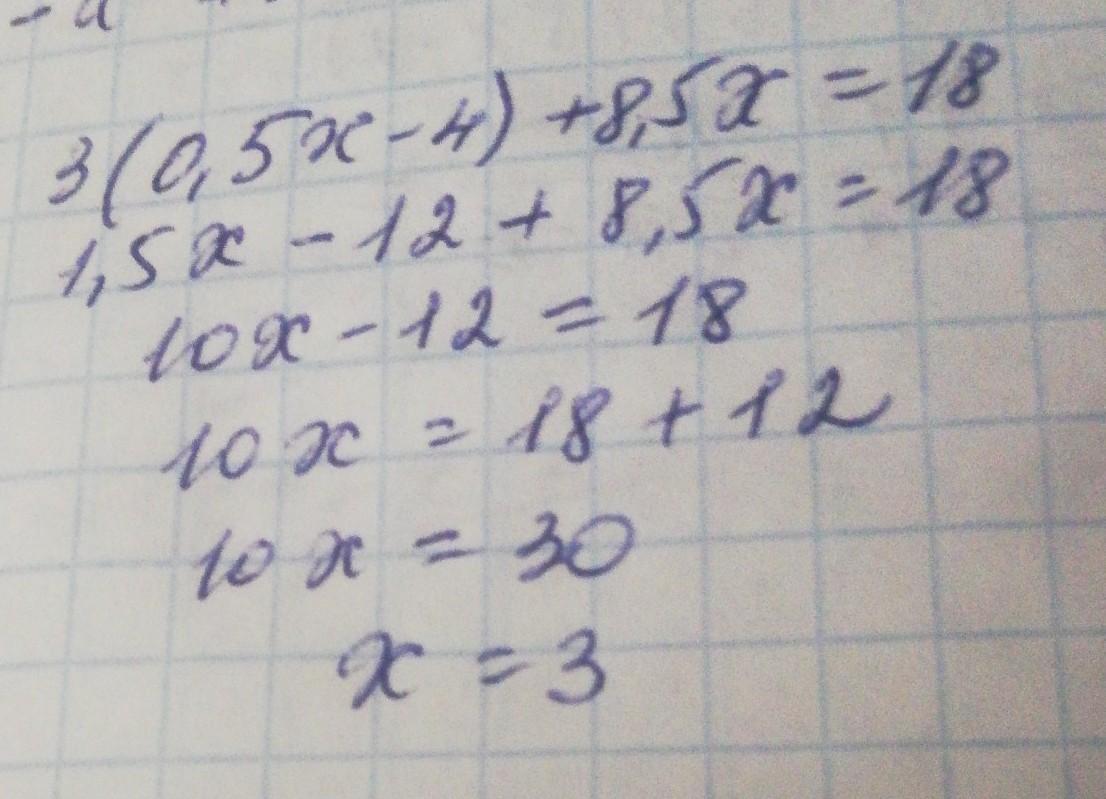 3(0,5x-4)+8,5x=18
1,5x-12+8,5x=18
10x-12=18
10x=18+12
10x=30
x=3